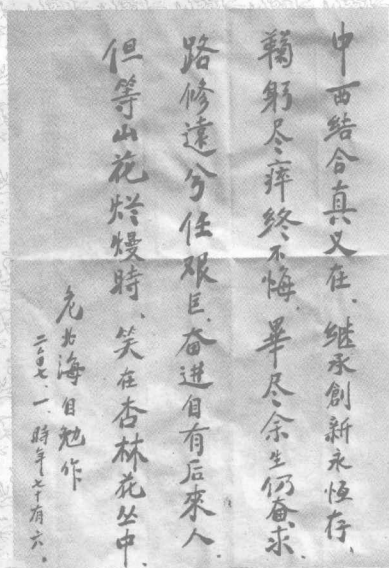 中西结合真义在、继承創新永恒存、
鞠躬尽瘁终不悔、畢尽余生仍奋求、
路修遠兮任艰巨、奋进自有后來人、
但等山花烂熳時、笑在杏林花丛中、
危北海自勉作
二〇〇七、一、時年七十有六。